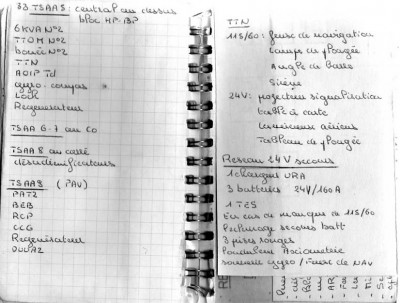 33 TSAAS: central au dessus
bloc HP-BP
6KVA N°2
TTOM N°2
bouée N°2
TTN
AOIP Td
gyro-compas
Lock
Regenerateur
TSAA 6-7 au CO
TSAA 8 au carré
desidemificateurs
TSAA9 (PAV)
PAT2
BEB
RCP
CCG
Regenerateur
TTN
115/60: feux de navigation
lampes de plongée
Angle de barre
Sirène
24V: projecteur signalisation
table à carte
lumineuse aériens
Tableau de plongée
Reseau 24V secours
1 chargeur URA
3 batteries 24V/160A
1 TES
En cas de manque de 115/60
Rechargeage secours batt
3 prises rouges
Pondulum Axiometre
sonnerie gyro / Feux de NAV